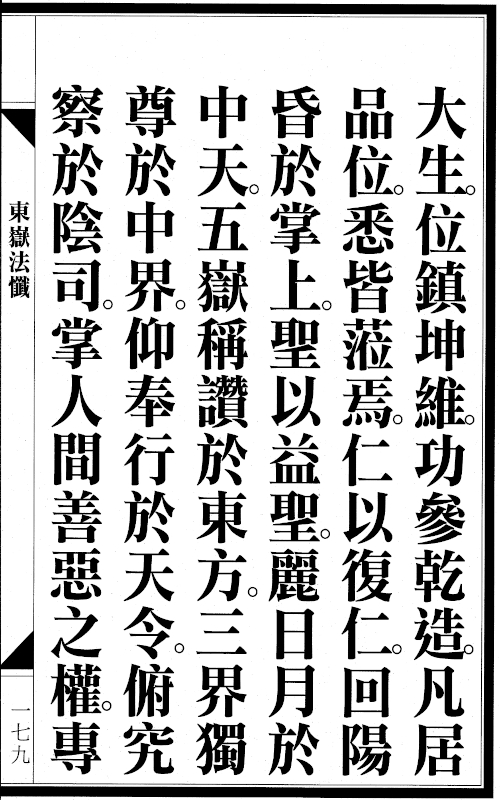 大生。位鎮坤維。功參乾造。凡居
品位。悉皆蒞焉。仁以復仁。回陽
昏於掌上。聖以益聖。麗日月於
中天。五嶽稱讚於東方。三界獨
尊於中界。仰奉行於天令。俯究
察於陰司。掌人間善惡之權。專
東嶽法懺
一七九